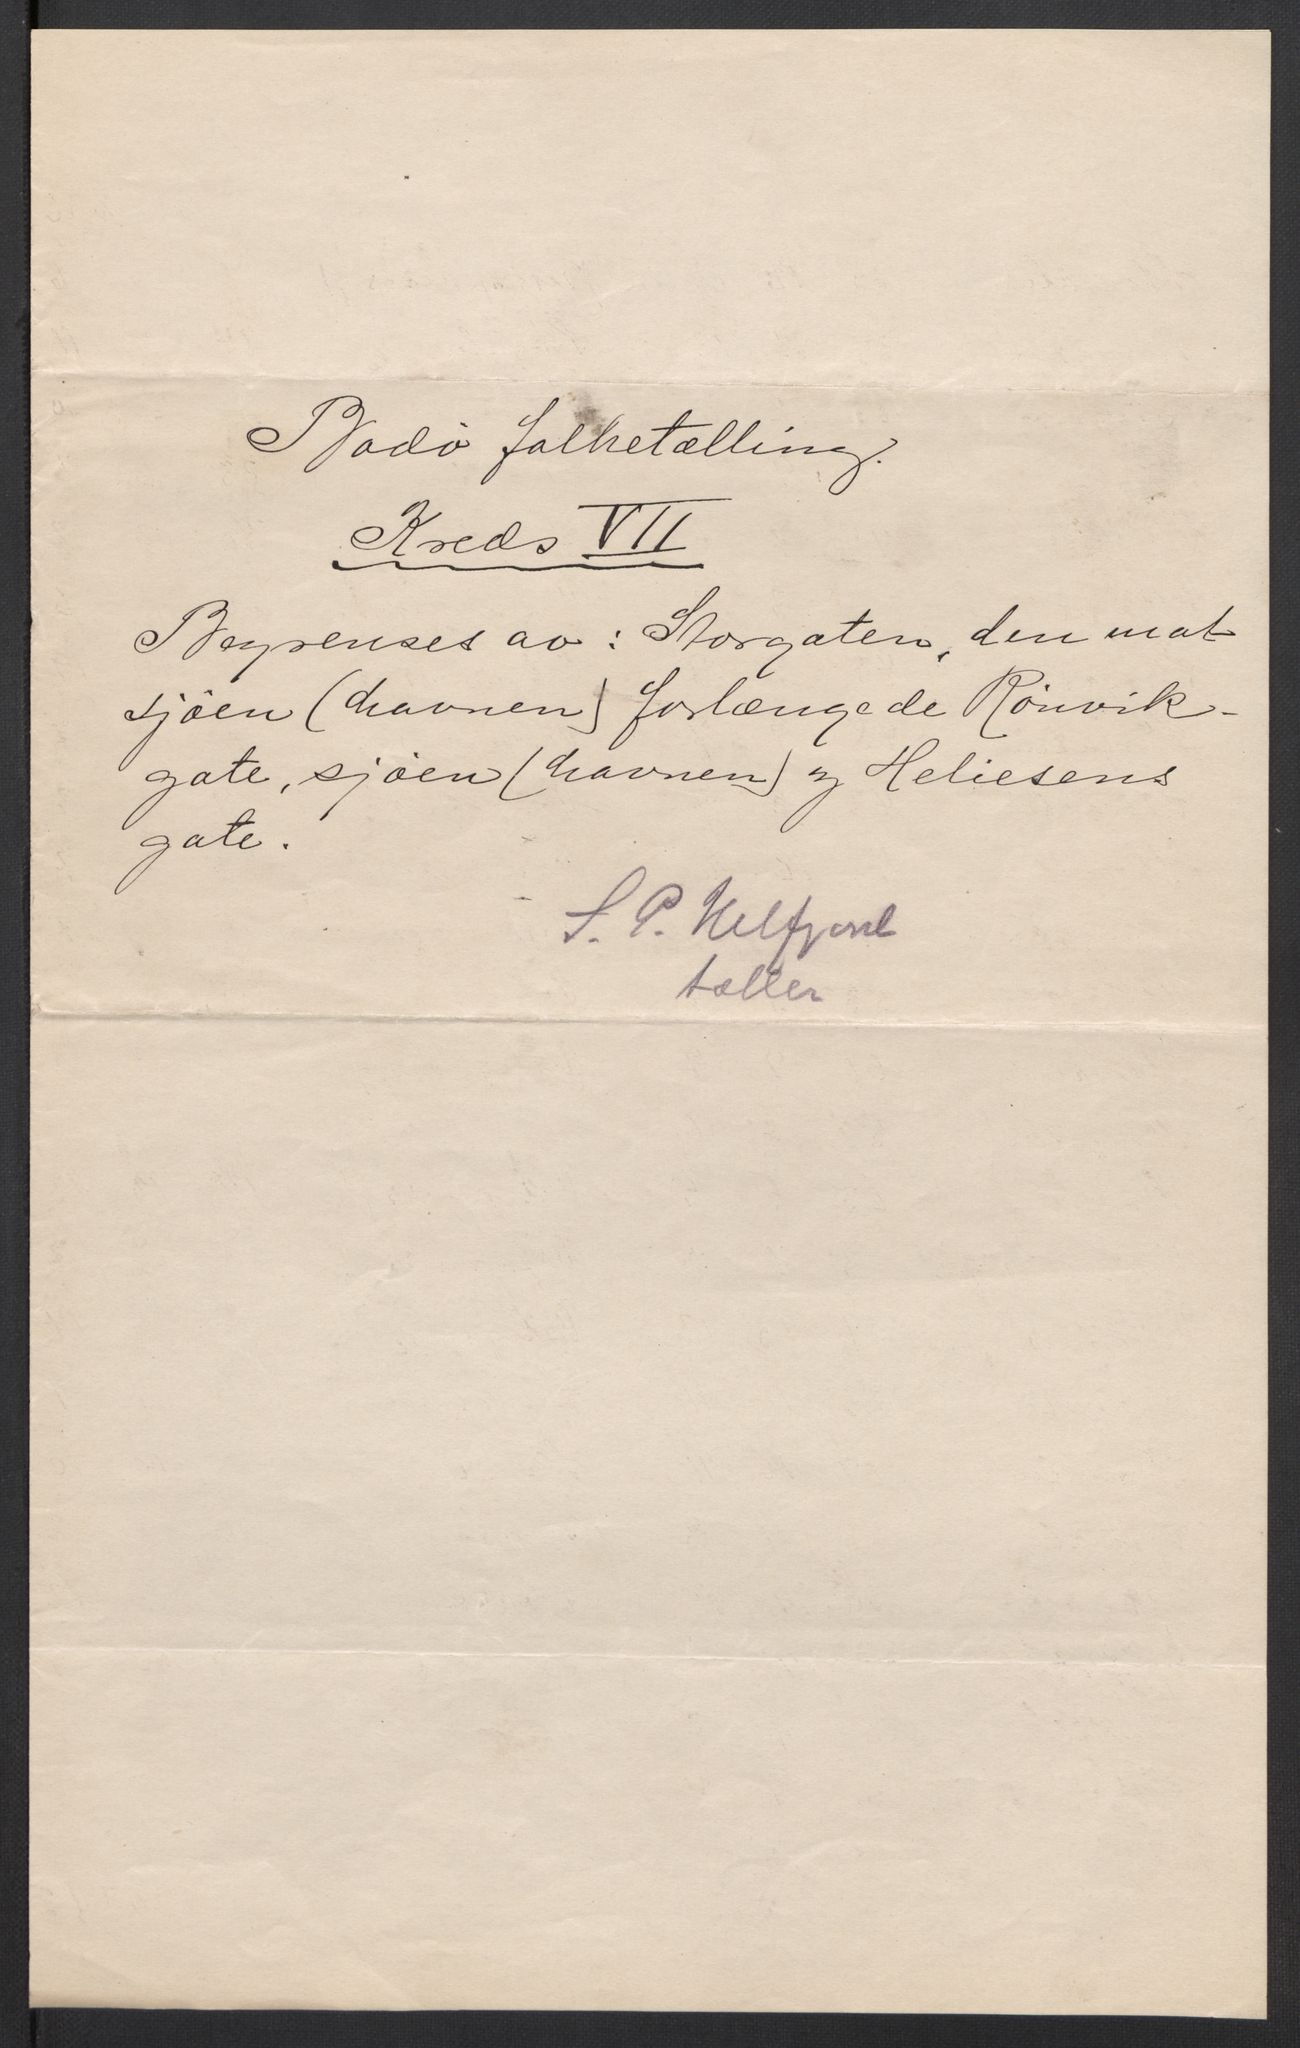 Bodö folketælling.
Kreds VII
Begrenses av: Storgaten, den mot
sjöen (havnen) forlængede Rönvik-
gate, sjöen (havnen) og Heliesens
gate.
S. P. Helfjord
tæller